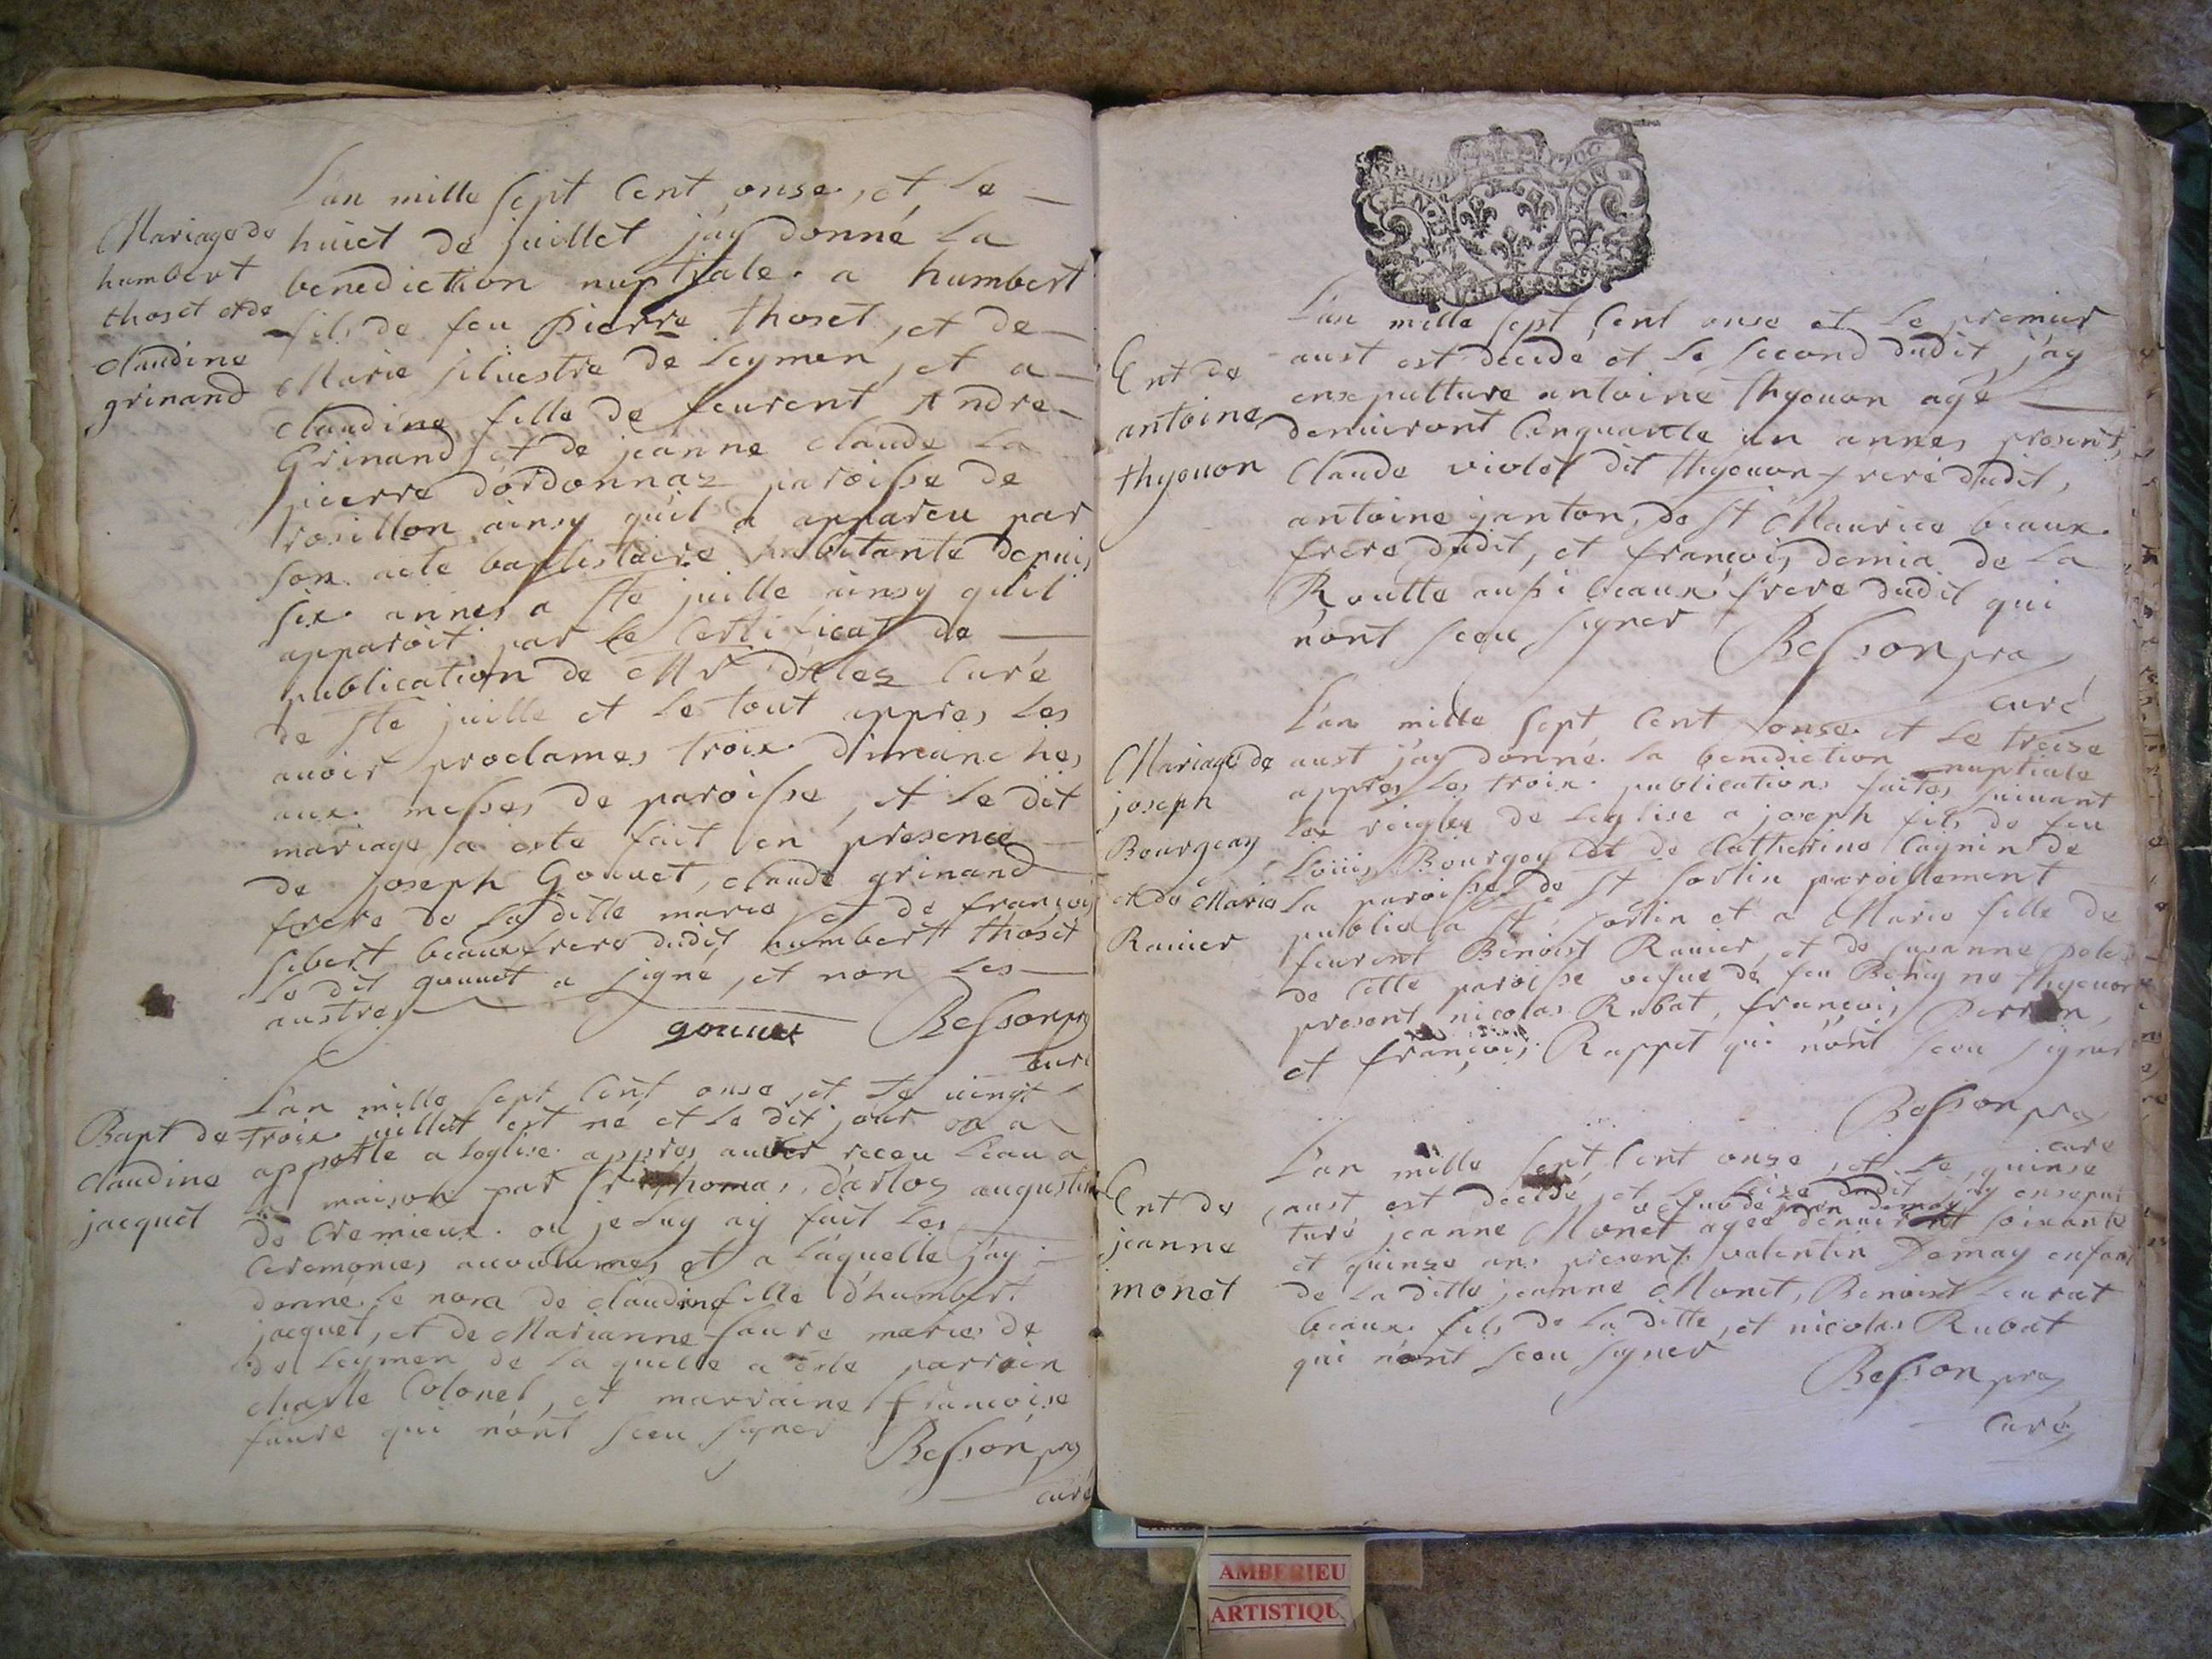 L'an mille sept cent onse, et le
Mariage de
humbert
thoset et de
claudine
grinand
huict de juillet j'ay donné la
benediction nuptiale a humbert
fils de feu pierre thoset, et de
Marie siluestre de Leymen, et a
claudine fille de feurent Andre
Grinand et de jeanne claude la
pierre d'ordonnaz paroisse de
rosillon ainsy qu'il a appareu par
son acte baptistaire habitante depuis
six annes a ste juille ainsy qu'il
apparoit par le certificat de
publication de Mr curé
de ste juille et le tout appres les
auoir proclames troix dimanches
aux messes de paroisse, et le dit
mariage a este fait en presence
de joseph Gouuet, claude grinand
frere de la ditte marie et de françois
sibert beaux frere dudit humbert thoset
le dit gouuet a signé, et non les
austres
gouuet Besson pre
curé
L'an mille sept cent onse et le uingt
Bapt de
claudine
jacquet
troix juillet est né et le dit jour on a
apporté a leglise appres auoir receu l'eau a
la maison par fr thomas d'arlos augustin
de Cremieux ou je luy ay fait les
ceremonies accoutumes et a laquelle j'ay
donné le nom de claudine fille d'humbert
jacquet, et de Marianne faure maries de
de Leymen de la quelle a este parrain
charle Colonel, et marraine françoise
faure qui n'ont sceu signer
Besson pre
curé
GEN
L'an mille sept cent onse et le premier
Ent de
antoine
thyouon
aust est decedé et le second dudit j'ay
ensepulture antoine thyouon agé
denuiront cinquante un annes presents
Claude violet dit thyouon frere dudit,
antoine janton, de st Maurice beaux
frere dudit, et françois demia de la
Routte aussi beaux frere dudit qui
n'ont sceu signer
Besson pre
curé
L'an mille sept cent onse et le treise
Mariage de
joseph
Bourgeay
et de Marie
Rauier
aust j'ay donné la benediction nuptiale
appres les troix publications faites suiuant
les reigles de leglise a joseph fils de feu
Louis Bourgey et de Catherine Cagnin de
la paroisse de st sorlin pareillement
publié a st sorlin et a Marie fille de
feurent Benoist Rauier, et de susanne
de cette paroisse vefue de feu Benigne thyouon
present nicolas Rubat, françois Perron,
et françois Rappet qui n'ont sceu signer
Besson pre
curé
L'an mille sept cent onze et le quinse
Ent de
jeanne
monet
aust est decedé et le seize dudit j'ay ensepul
vefue de jean demay
turé jeanne Monet agée denuiront soixante
et quinze ans present valentin Demay enfant
de la ditte jeanne Monet, Benoist Leurat
beaux fils de la ditte, et nicolas Rubat
qui n'ont sceu signer
Besson pre
curé
AMBERIEU
ARTISTIQU